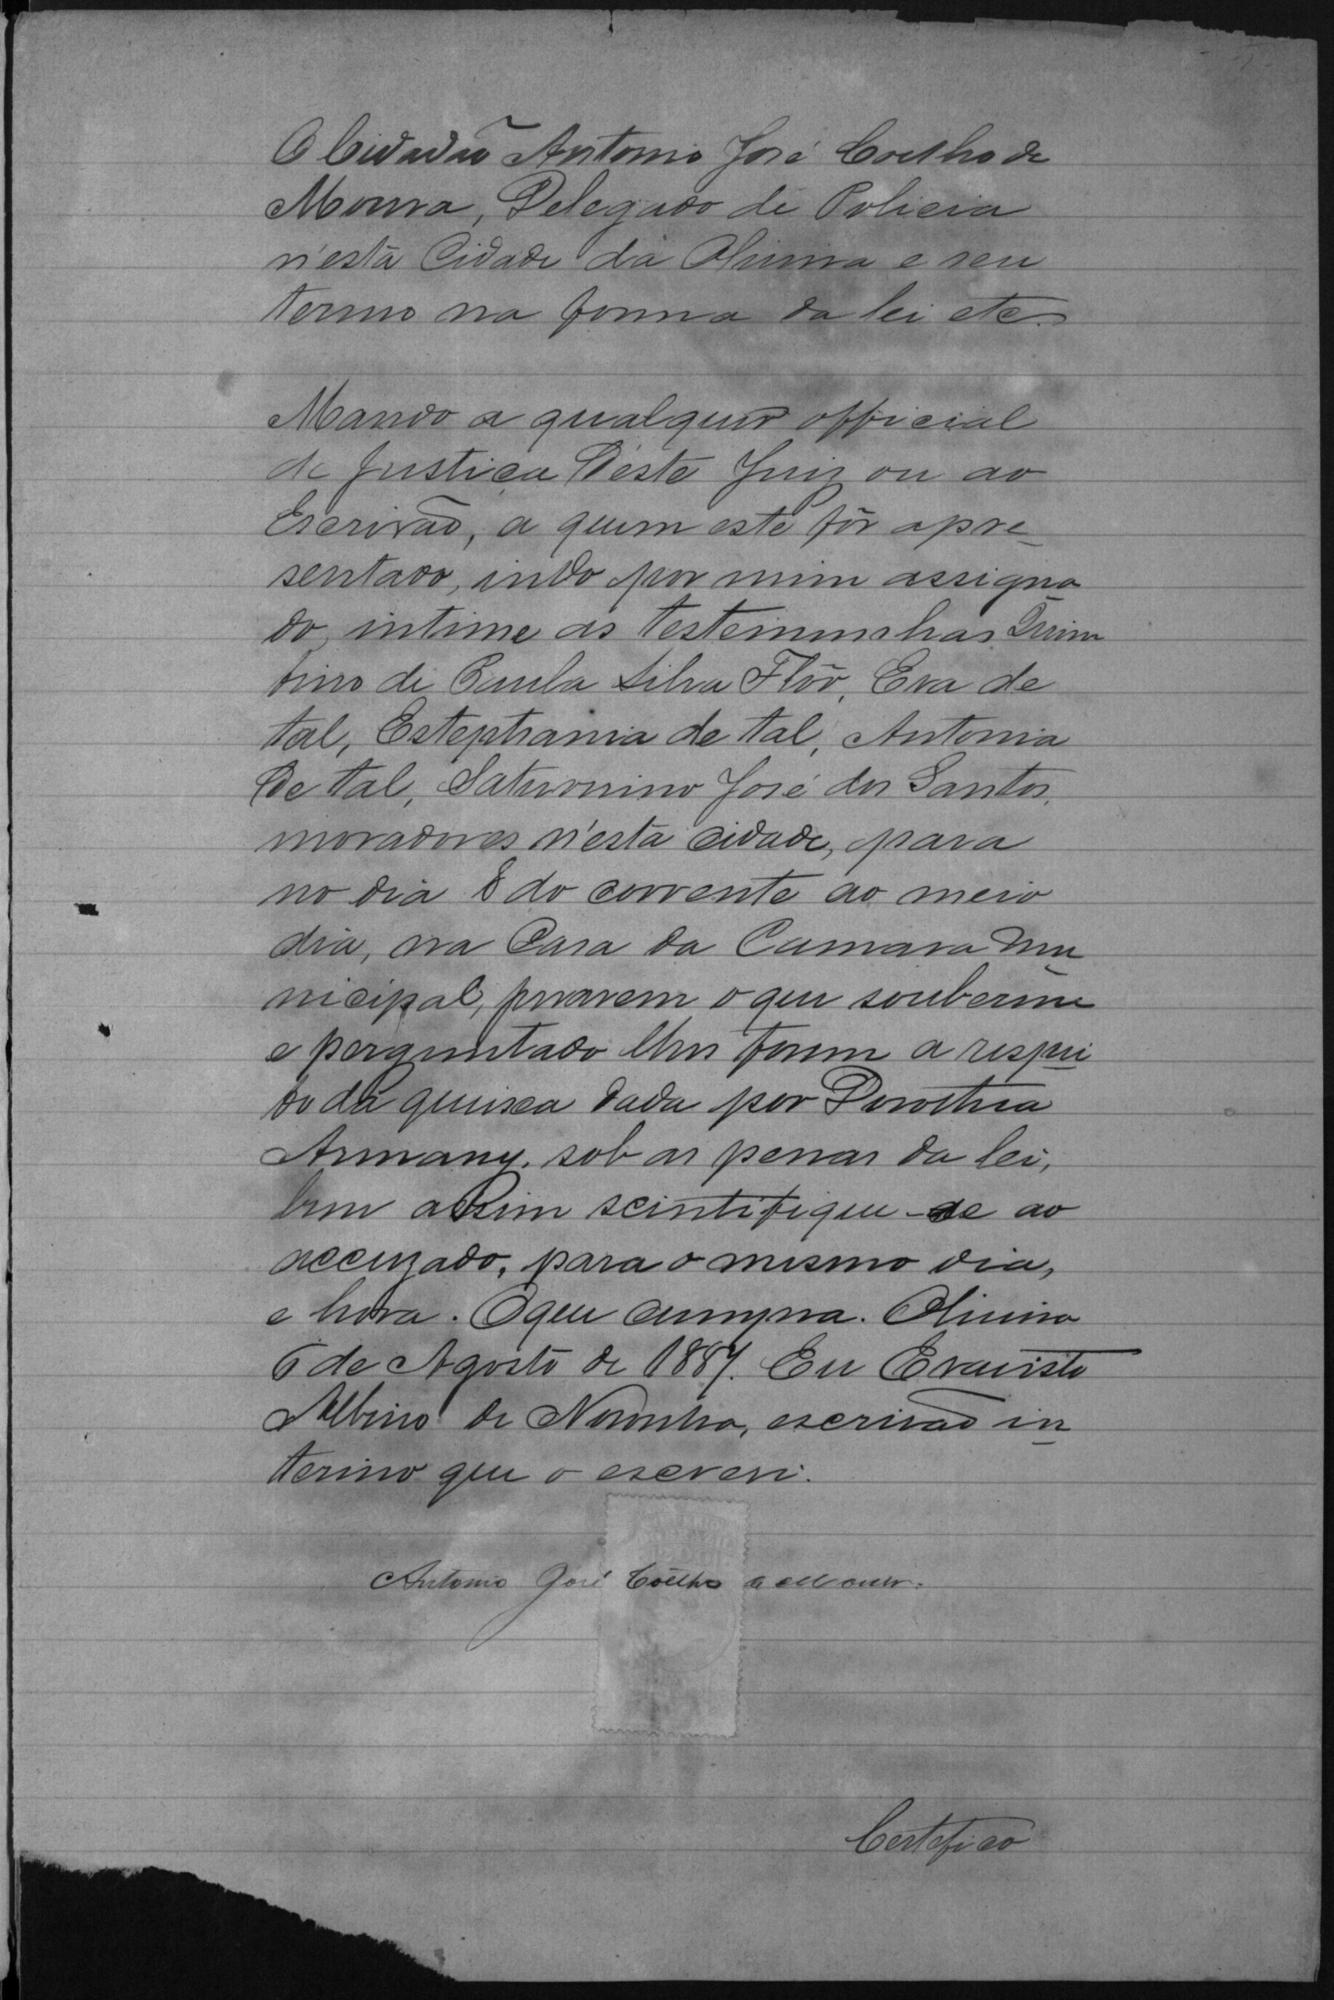 O Cidadão Antonio José Coelho de
Moura, Delegado de Policia
n'esta Cidade da Oliveira e seu
termo na forma da lei etc.
Mando a qualquer official
de Justiça d'este Juiz ou ao
Escrivão, a quem este fôr apre-
sentado, indo por mim assigna-
do, intime as testemunhas
tino de Paula Silva Flôr, Eva de
tal, Estephania de tal, Antonia
de tal, Saturnino José dos Santos,
moradores n'esta cidade, para
no dia 8 do corrente ao meio
dia, na Casa da Camara Mu
nicipal, provarem o que souberem
e perguntado lhes forem a respei
to da queixa dada por Dorothea
Armany, sob as penas da lei,
bem assim scintifique-se ao
accuzado, para o mesmo dia,
e hora. O que cumpra. Oliveira
6 de Agosto de 1887. Eu Evaristo
Albino de Noronha, escrivão in-
terino que o escrevi.
Antonio José Coêlho de Moura.
Certefico